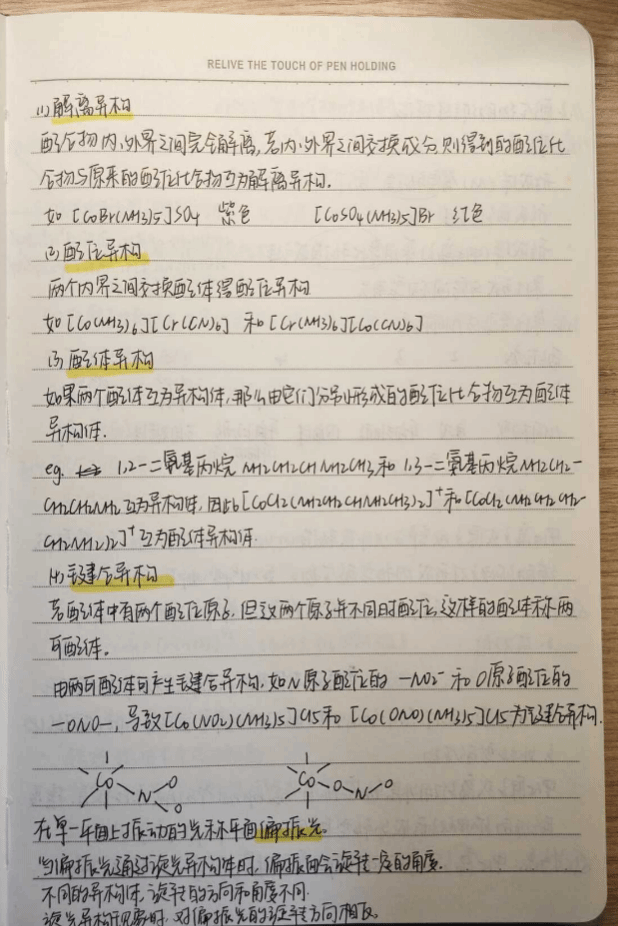 RELIVE THE TOUCH OF PEN HOLDING
(1) 解离异构
配合物内、外界之间完全解离,若内、外界之间交换成分则得到的配位化
合物与原来的配位化合物互为解离异构.
如 [CoBr(NH3)5]SO4 紫色 [CoSO4(NH3)5]Br 红色
(2) 配位异构
两个内界之间交换配体得配位异构
如 [Co(NH3)6][Cr(CN)6] 和 [Cr(NH3)6][Co(CN)6]
(3) 配体异构
如果两个配体互为异构体,那么由它们分别形成的配位化合物互为配体
异构体.
eg. 1,2-二氨基丙烷 NH2CH2CHNH2CH3 和 1,3-二氨基丙烷 NH2CH2-
CH2CH2NH2 互为异构体,因此 [CoCl2(NH2CH2CHNH2CH3)2]+ 和 [CoCl2(NH2CH2CH2-
CH2NH2)2]+ 互为配体异构体.
(4) 键合异构
若配体中有两个配位原子,但这两个原子并不同时配位,这样的配体称两
可配体.
由两可配体可产生键合异构,如N原子配位的 -NO2- 和O原子配位的
-ONO-, 导致 [Co(NO2)(NH3)5]Cl5和 [Co(ONO)(NH3)5]Cl5为键合异构.
Co N O O
Co O N O
在单一平面上振动的光称平面偏振光.
当偏振光通过旋光异构体时,偏振面会旋转一定的角度.
不同的异构体,旋转的方向和角度不同.
旋光异构现象时,对偏振光的旋转方向相反.